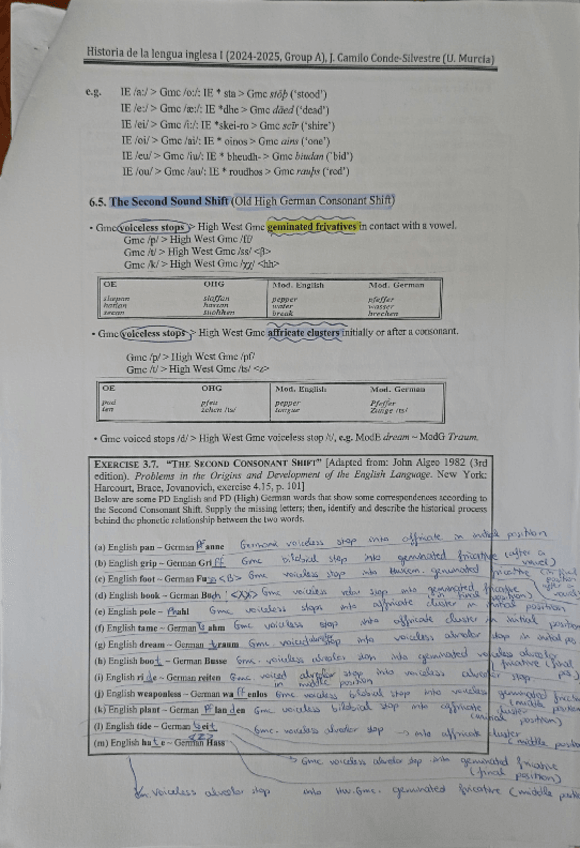 Historia de la lengua inglesa I (2024-2025, Group A), J. Camilo Conde-Silvestre (U. Murcia)
e.g. IE /a:/ > Gmc /o:/: IE * sta > Gmc stōþ ('stood')
IE /e:/ > Gmc /æ:/: IE *dhe > Gmc dæed ('dead')
IE /ei/ > Gmc /i:/: IE *skei-ro > Gmc scīr ('shire')
IE /oi/ > Gmc /ai/: IE * oinos > Gmc ains ('one')
IE /eu/ > Gmc /iu/: IE * bheudh- > Gmc biudan ('bid')
IE /ou/ > Gmc /au/: IE * roudhos > Gmc rauþs ('red')
6.5. The Second Sound Shift (Old High German Consonant Shift)
• Gmc voiceless stops > High West Gmc geminated frivatives in contact with a vowel.
Gmc /p/ > High West Gmc /ff/
Gmc /t/ > High West Gmc /ss/ <β>
Gmc /k/ > High West Gmc /χχ/ <hh>
OE OHG Mod. English Mod. German
slaffan pepper pfeffer
water wasser
break brechen
• Gmc voiceless stops > High West Gmc affricate clusters initially or after a consonant.
Gmc /p/ > High West Gmc /pf/
Gmc /t/ > High West Gmc /ts/ <z>
OE OHG Mod. English Mod. German
pepper Pfeffer
ten zehen /ts/ tongue Zunge /ts/
• Gmc voiced stops /d/ > High West Gmc voiceless stop /t/, e.g. ModE dream ~ ModG Traum.
EXERCISE 3.7. "THE SECOND CONSONANT SHIFT" [Adapted from: John Algeo 1982 (3rd
edition). Problems in the Origins and Development of the English Language. New York:
Harcourt, Brace, Jovanovich, exercise 4.15, p. 101]
Below are some PD English and PD (High) German words that show some correspondences according to
the Second Consonant Shift. Supply the missing letters; then, identify and describe the historical process
behind the phonetic relationship between the two words.
(a) English pan ~ German Pf anne Germanic voiceless stop into affricate in initial position
(b) English grip ~ German Gri ff Gmc bilabial stop into geminated fricative (after a vowel)
(c) English foot ~ German Fu <β> Gmc voiceless stop into geminated fricative
(d) English book ~ German Buch Gmc voiceless velar stop into geminated fricative
(e) English pole ~ Pf ahl Gmc voiceless stops into affricate cluster in initial position
(f) English tame ~ German z ahm Gmc voiceless stop into affricate cluster in initial position
(g) English dream ~ German t raum Gmc. voiced alveolar stop into voiceless alveolar stop in initial pos
(h) English boot ~ German Busse Gmc. voiceless alveolar stop into geminated voiceless alveolar fricative
(i) English ri de ~ German reiten Gmc voiced alveolar stop into voiceless alveolar stop.
in middle position
(j) English weaponless ~ German wa ff enlos Gmc voiceless bilabial stop into voiceless geminated
(k) English plant ~ German Pf landen Gmc voiceless bilabial stop into affricate cluster
(initial position)
(l) English tide ~ German Zeit Gmc. voiceless alveolar stop → into affricate cluster
(m) English ha t e ~ German Hass
→ Gmc voiceless alveolar stop into geminated fricative
(final position)
voiceless alveolar stop into Hw.Gmc. geminated fricative (middle